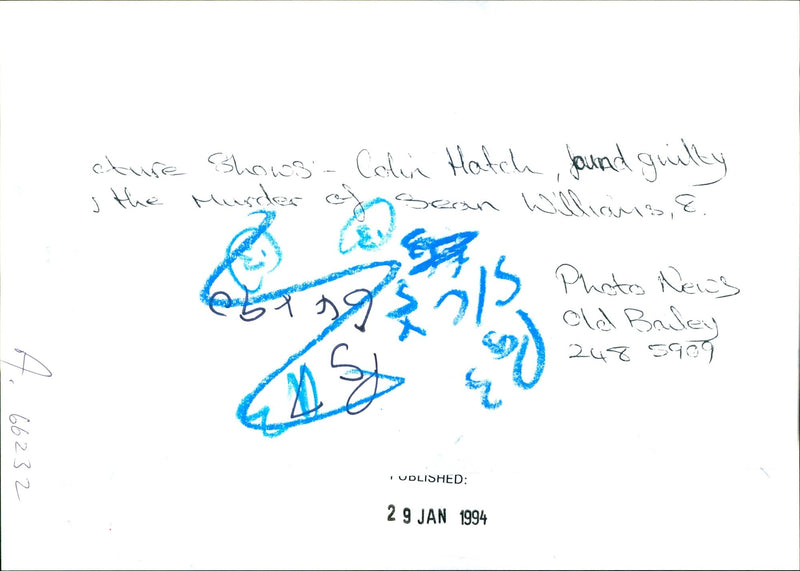 cture Shows:- Colin Hatch, found guilty
the Murder of Sean Williams, 8.
Photo News
Old Bailey
248 5909
A. 66232
PUBLISHED:
29 JAN 1994